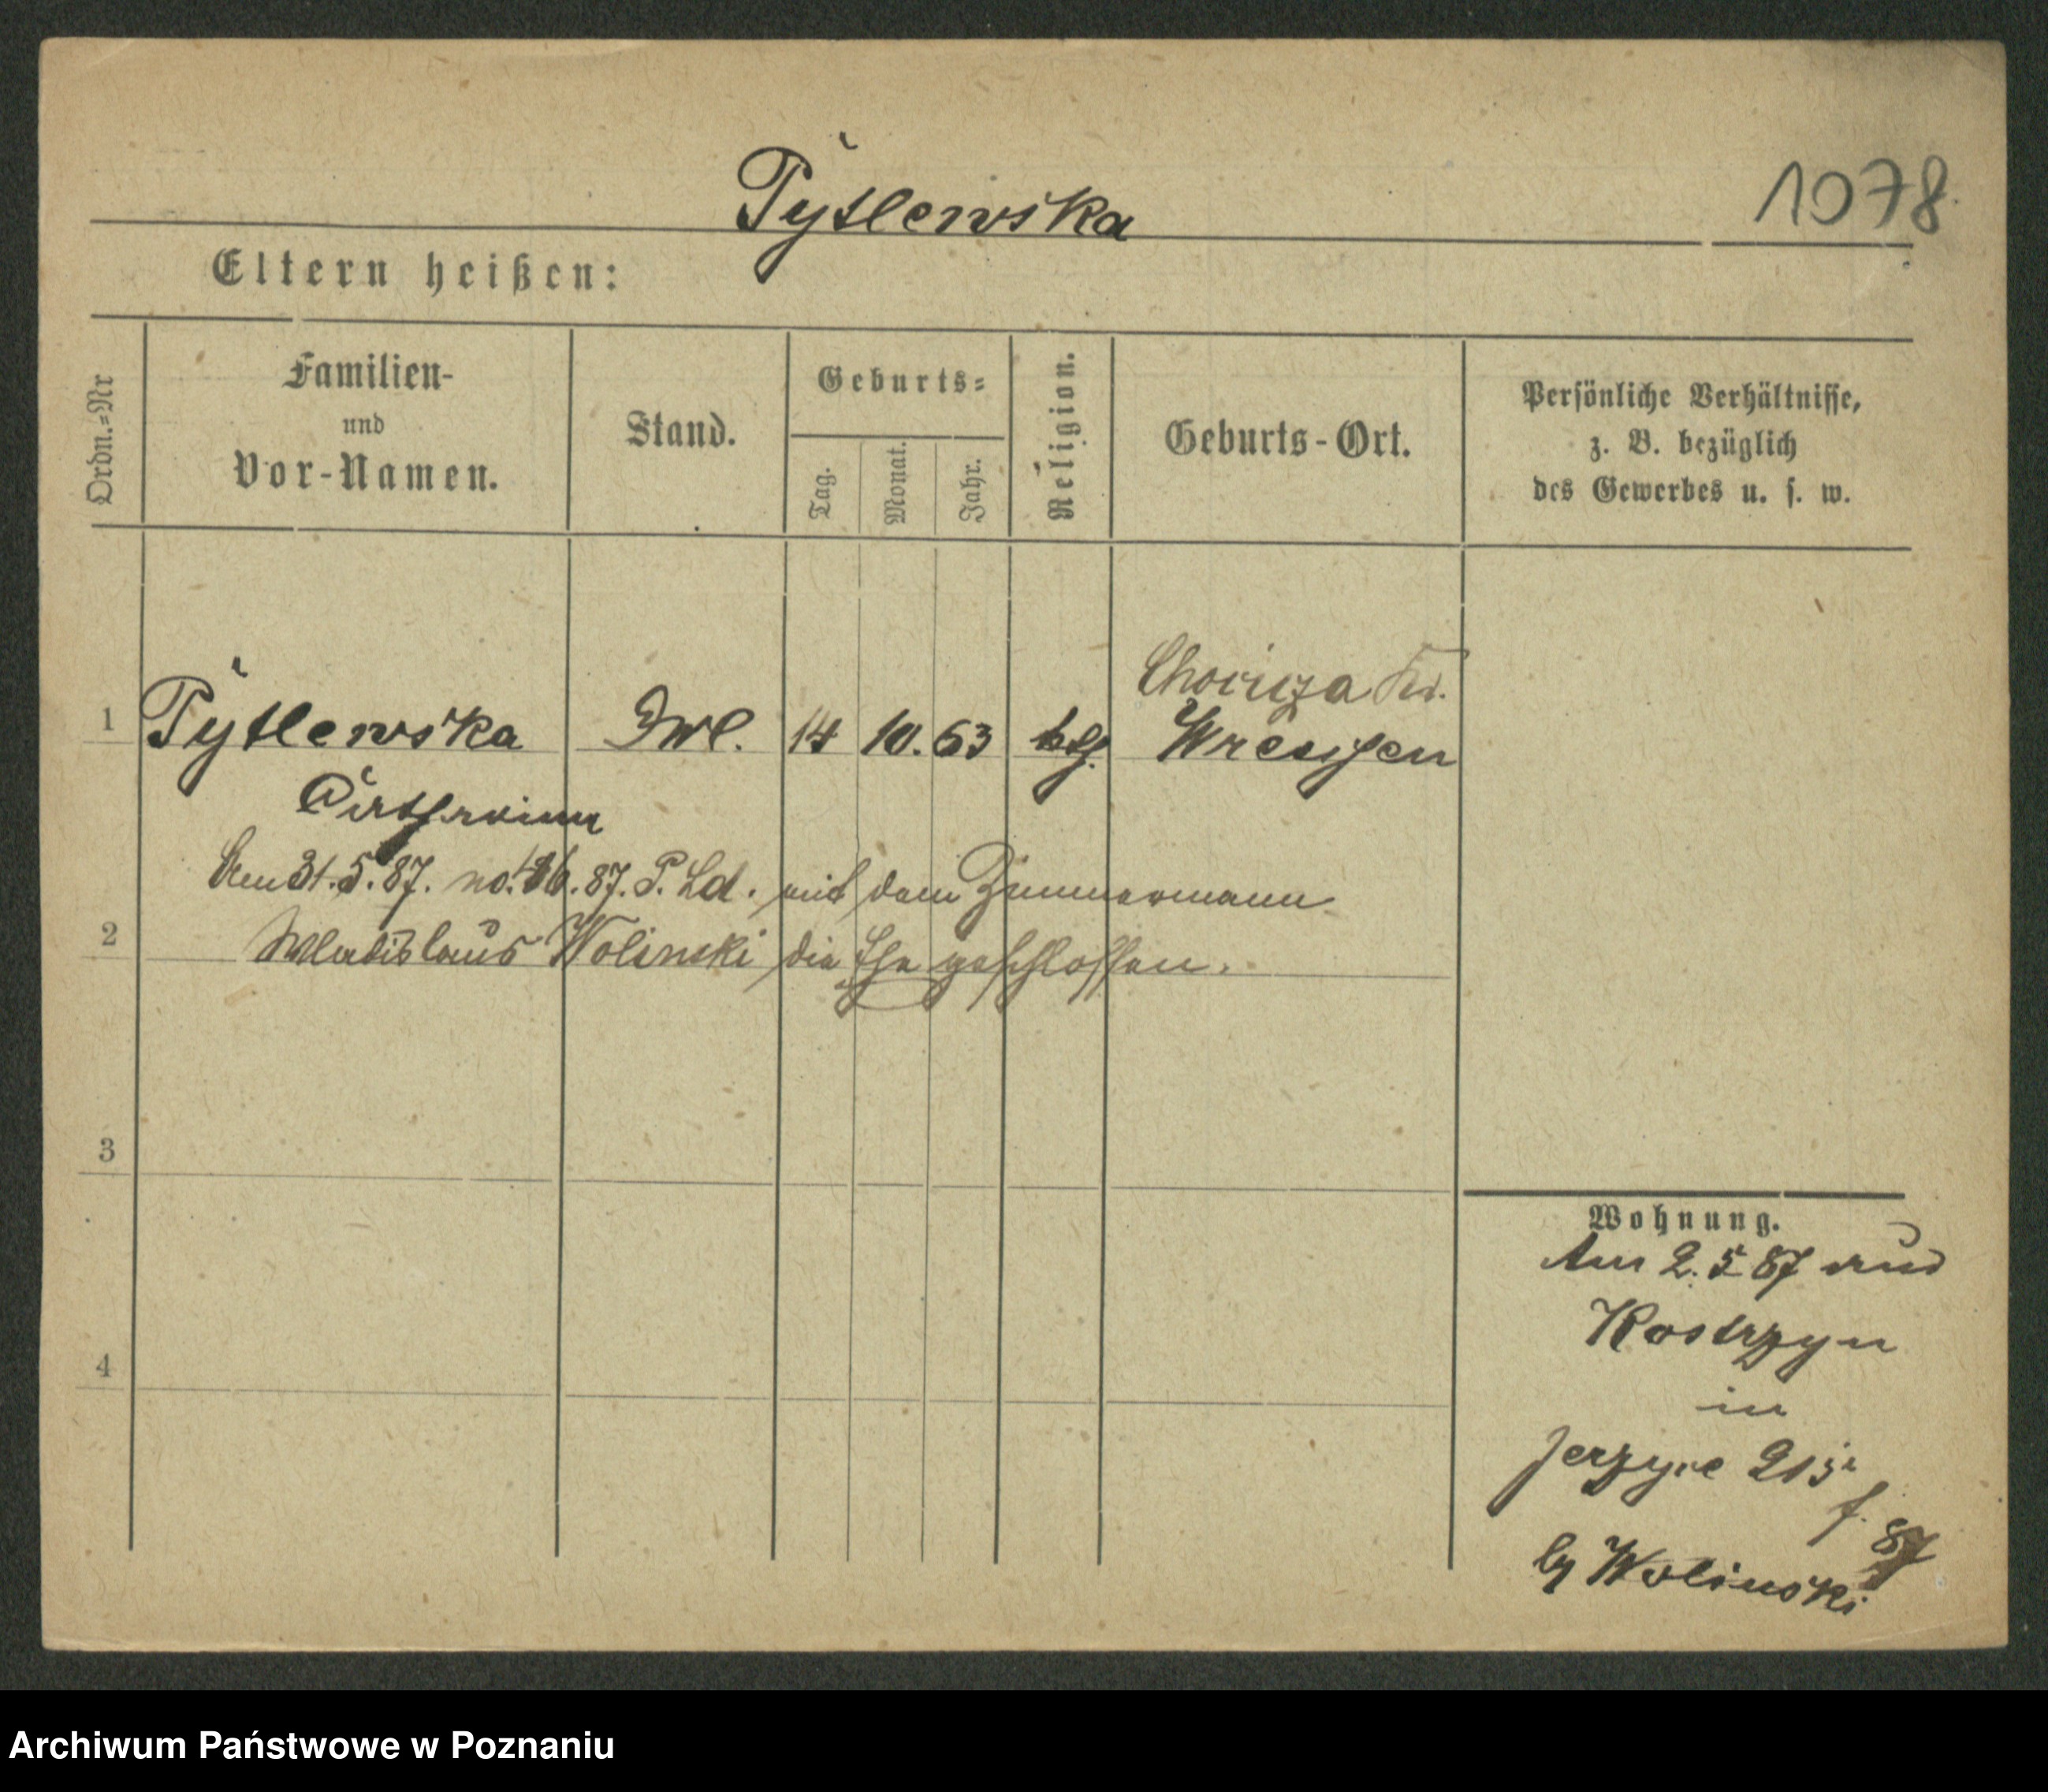 Pytlewska
1078
Eltern heißen:
Ordn.=Nr
Familien-
und
Vor-Namen.
Stand.
Geburts=
Tag.
Monat.
Jahr.
Religion.
Geburts-Ort.
Persönliche Verhältnisse,
z. B. bezüglich
des Gewerbes u. s. w.
1 Pytlewska 14 10. 63 kth. Chocicza Kr.
Wreschen
Am 31.5.87. no. 87. P. Ld. mit dem Zimmermann
2 Wladislaus Wolinski die Ehe geschlossen.
3
4
Wohnung.
Am 2. 5 87 aus
Kostrzyn
in
Jerzyce
87
Wolinski
Archiwum Państwowe w Poznaniu